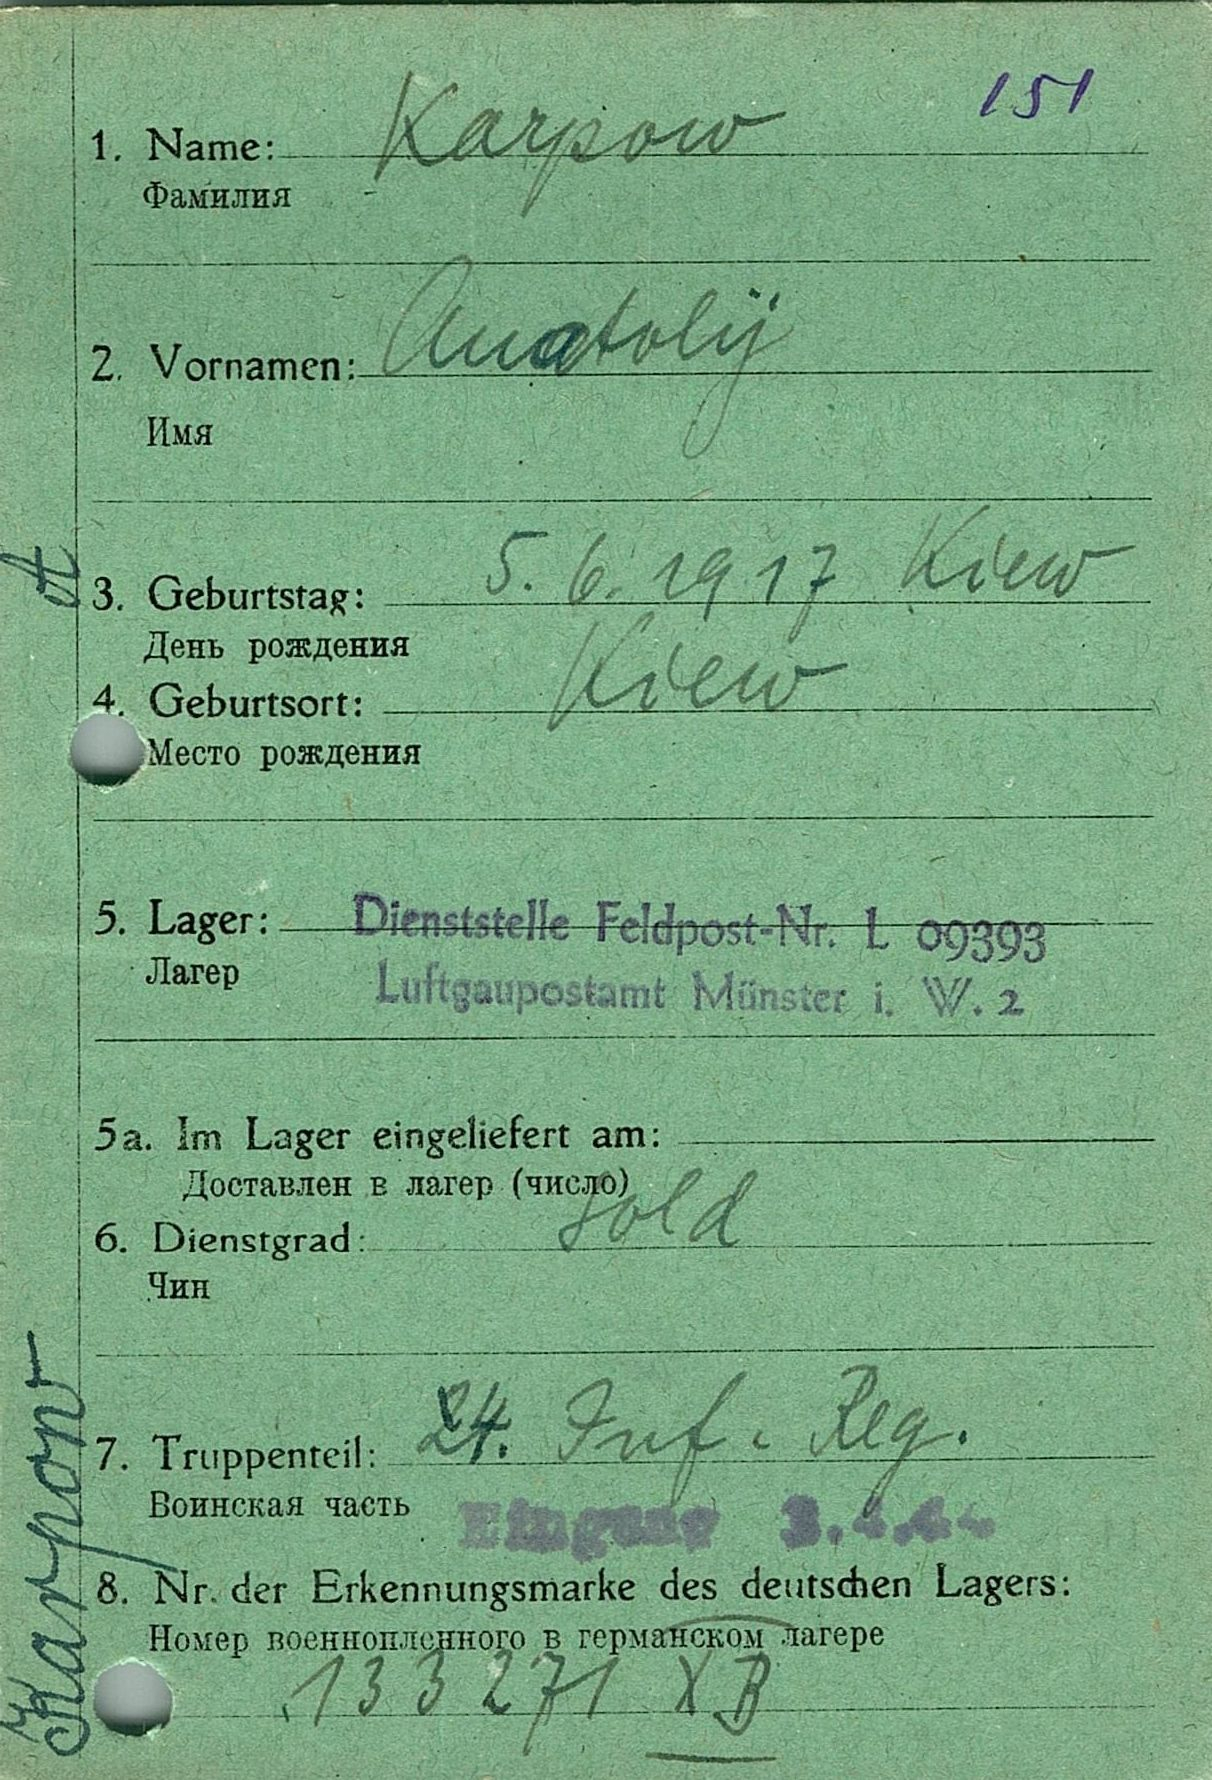 151
1. Name: Karpow
Фамилия
2. Vornamen: Anatolij
Имя
3. Geburtstag: 5. 6. 1917 Kiew
День рождения
4. Geburtsort: Kiew
Место рождения
5. Lager: Dienststelle Feldpost-Nr. L 09393
Лагер Luftgaupostamt Münster i. W. 2
5a. Im Lager eingeliefert am:
Доставлен в лагер (число)
6. Dienstgrad: Sold
Чин
7. Truppenteil: 24. Inf. Reg.
Воинская часть Eingang
8. Nr. der Erkennungsmarke des deutschen Lagers:
Номер военнопленного в германском лагере
133271 XB
Karpow
A